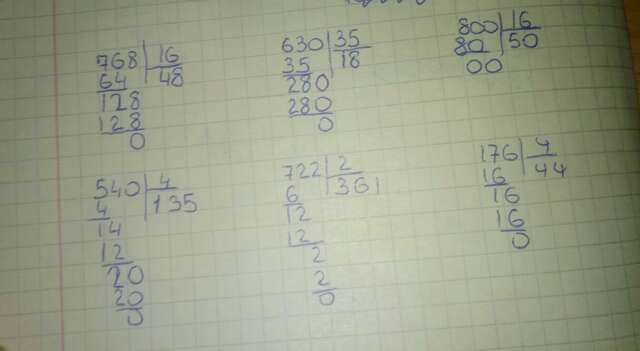 768 16
64 48
128
128
0
630 35
35 18
280
280
0
800 16
80 50
00
540 4
4 135
14
12
20
20
0
722 2
6 361
12
12
2
2
0
176 4
16 44
16
16
0